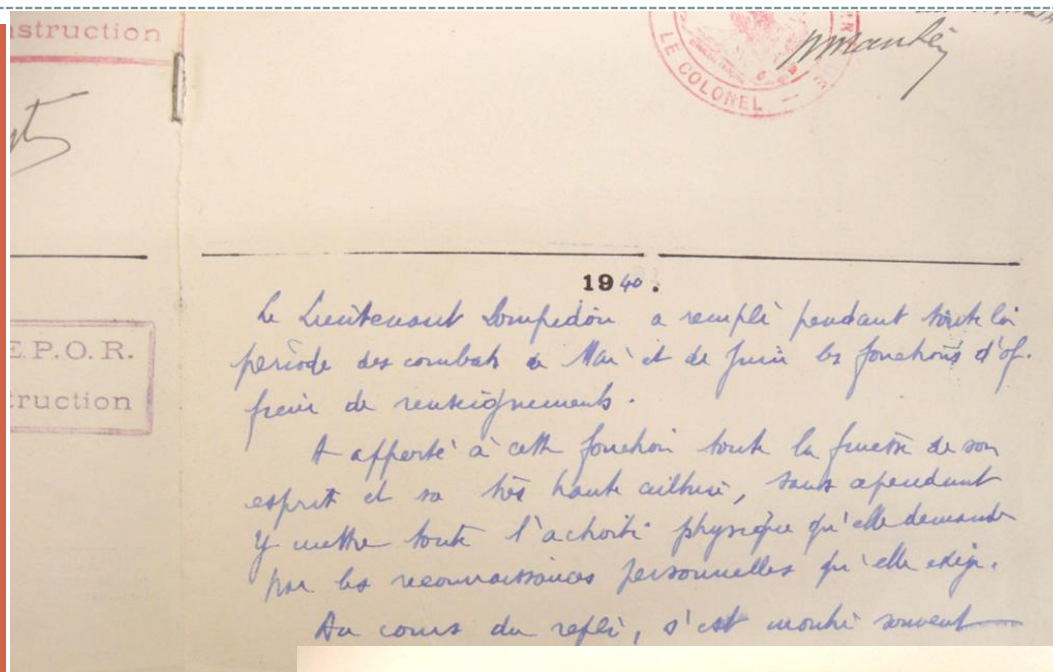 struction
LE COLONEL
1940.
Le Lieutenant Pompidou a rempli pendant toute la
période des combats de Mai et de Juin les fonctions d'of-
ficier de renseignements.
E.P.O.R.
truction
A apporté à cette fonction toute la finesse de son
esprit et sa très haute culture, sans cependant
y mettre toute l'activité physique qu'elle demande
par les reconnaissances personnelles qu'elle exige.
Au cours du repli, s'est montré souvent